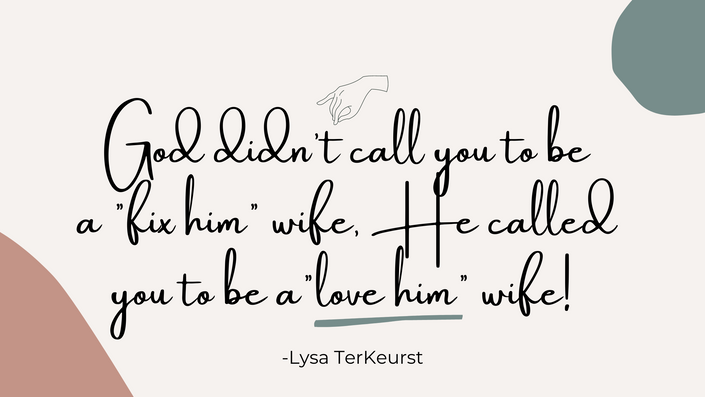 God didn't call you to be
a "fix him" wife, He called
you to be a "love him" wife!
-Lysa TerKeurst